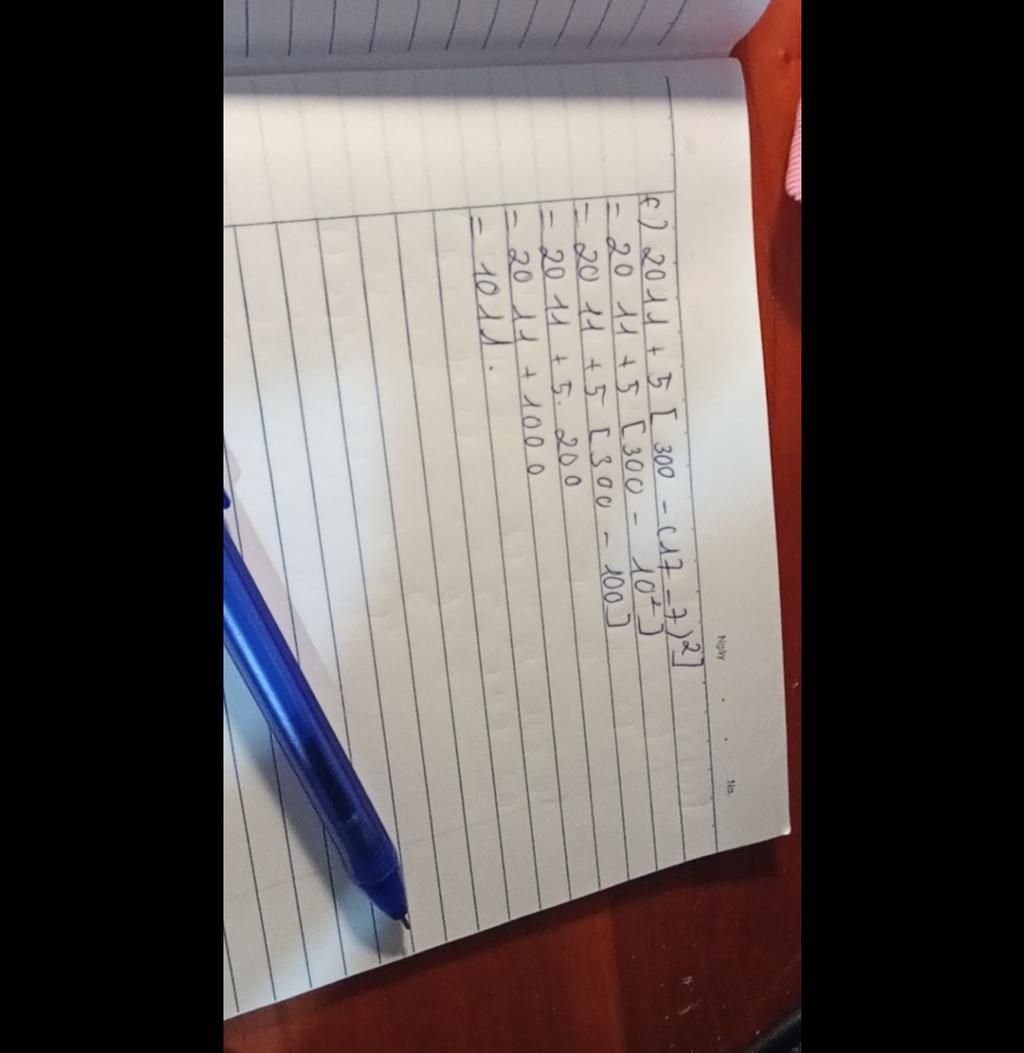 Ngày . . No.
c) 2011 + 5 [ 300 - (17 - 7)²]
= 20 11 + 5 [300 - 10²]
= 20 11 + 5 [300 - 100]
= 20 11 + 5. 200
= 20 11 + 1000
= 1011.